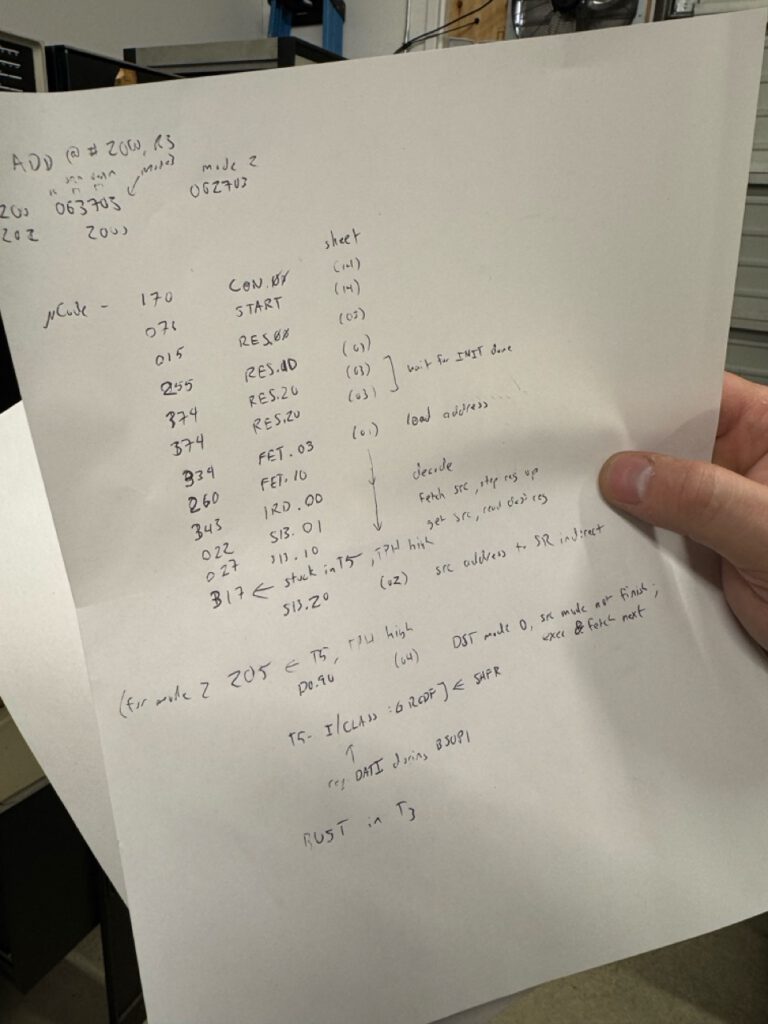 ADD @ # 2000, R3
mode3 mode 2
200 063703 062703
202 2000
sheet
μCode - 170 CON.00 (14)
076 START (14)
015 RES.00 (03)
255 RES.10 (03)
374 RES.20 (03) ] wait for INIT done
374 RES.20 (03)
334 FET.03 (01) load address
260 FET.10
343 IRD.00 decode
022 S13.01 fetch src, step reg up
027 S13.10 get src, read dest reg
317 ← stuck in T5, TPH high
S13.20 (02) src address to SR indirect
(for mode 2 205 ← T5, TPH high
D0.90 (04) DST mode 0, src mode not finish;
exec & fetch next
T5- I/CLASS : GRCDF] ← SAFR
↑
req DATI during BSOP1
BUST in T3